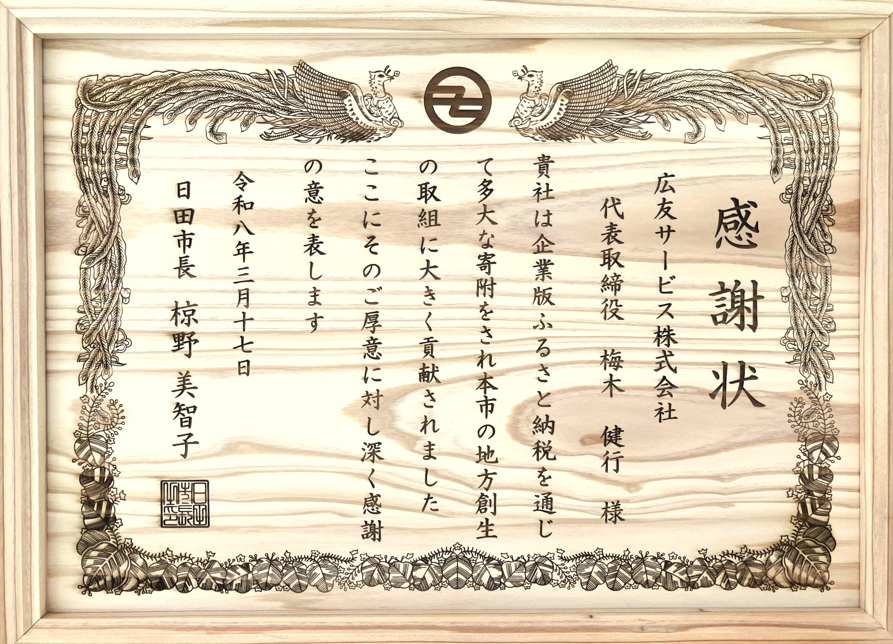 感謝状
広友サービス株式会社
代表取締役 梅木 健行 様
貴社は企業版ふるさと納税を通じ
て多大な寄附をされ本市の地方創生
の取組に大きく貢献されました
ここにそのご厚意に対し深く感謝
の意を表します
令和八年三月十七日
日田市長 椋野 美智子
日田市長之印